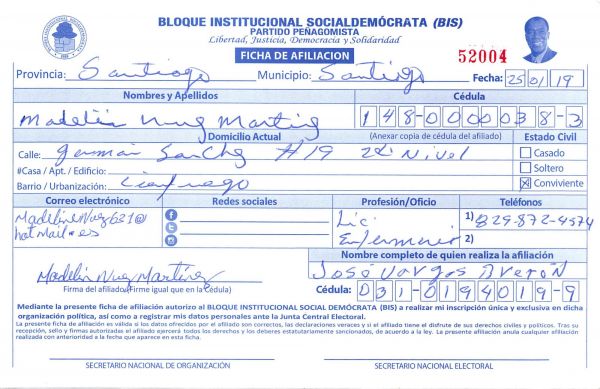 BLOQUE INSTITUCIONAL SOCIALDEMÓCRATA (BIS)
PARTIDO PEÑAGOMISTA
Libertad, Justicia, Democracia y Solidaridad
FICHA DE AFILIACION
52004
Provincia: Santiago Municipio: Santiago Fecha: 25/01/19
Nombres y Apellidos Cédula
Madelin Nuez Martinez 148-0000038-3
Domicilio Actual (Anexar copia de cédula del afiliado) Estado Civil
Calle: German Sanchez #19 2do Nivel Casado
#Casa / Apt. / Edificio: Soltero
Barrio / Urbanización: Cienfuego Conviviente
Correo electrónico Redes sociales Profesión/Oficio Teléfonos
MadelineNuez621@ Lic 1) 829-872-4574
hotmail.es Enfermeria 2)
Nombre completo de quien realiza la afiliación
Madelin Nuez Martinez José Vargas Breton
Firma del afiliado(Firme igual que en la Cédula) Cédula: 031-0194019-9
Mediante la presente ficha de afiliación autorizo al BLOQUE INSTITUCIONAL SOCIAL DEMÓCRATA (BIS) a realizar mi inscripción única y exclusiva en dicha
organización política, así como a registrar mis datos personales ante la Junta Central Electoral.
La presente ficha de afiliación es válida si los datos ofrecidos por el afiliado son correctos, las declaraciones veraces y si el afiliado tiene el disfrute de sus derechos civiles y políticos. Tras su
recepción, sello y firmas autorizadas el afiliado ejercerá todos los derechos y los deberes estatutariamente sancionados, de acuerdo a la ley. La presente afiliación anula cualquier afiliación
realizada con anterioridad a la fecha que aparece en esta ficha.
SECRETARIO NACIONAL DE ORGANIZACIÓN SECRETARIO NACIONAL ELECTORAL